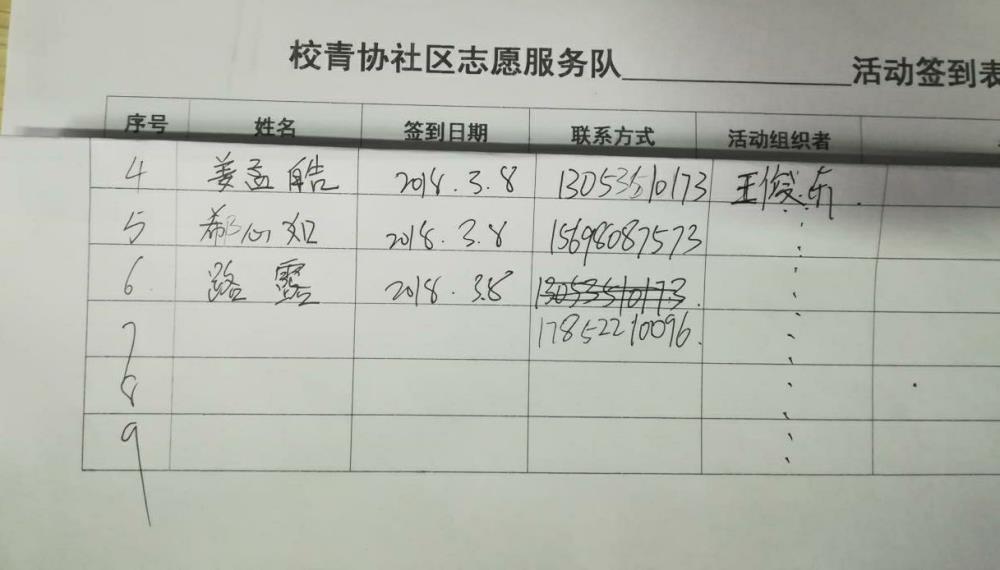 校青协社区志愿服务队____________活动签到表
序号 姓名 签到日期 联系方式 活动组织者
4 姜孟皓 2018.3.8 13053510173 王俊东
5 郗心如 2018.3.8 15698087573
6 路露 2018.3.8 13053510173
7 17852210096
8
9